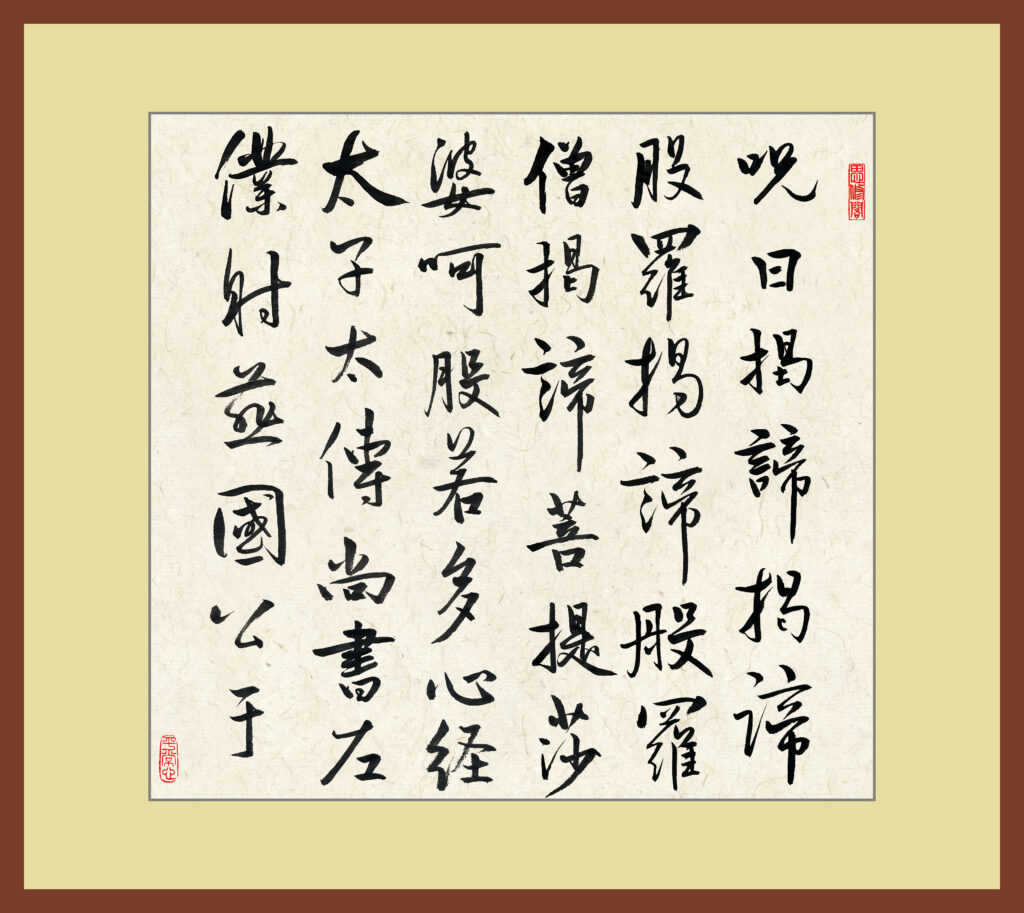 呪曰揭諦揭諦
般羅揭諦般羅
僧揭諦菩提莎
婆呵般若多心経
太子太傅尚書左
僕射燕國公于